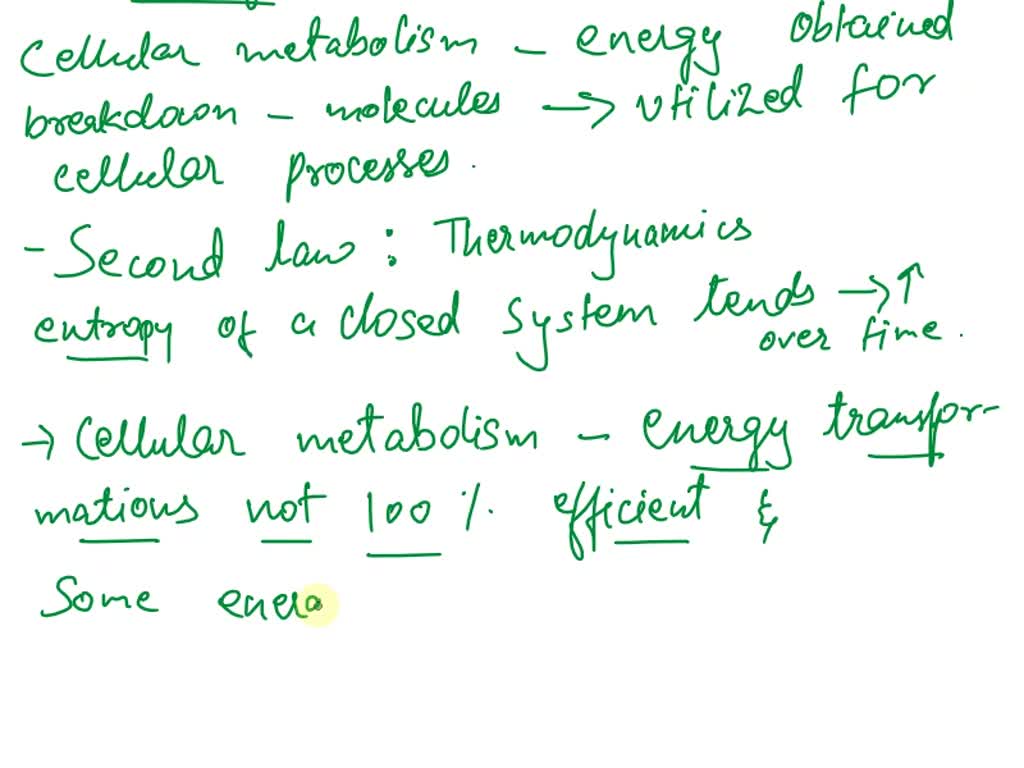 Cellular metabolism - energy obtained
breakdown - molecules → utilized for
cellular processes.
- Second law : Thermodynamics
entropy of a closed system tends → ↑
over time.
→ Cellular metabolism - energy transfor-
mations not 100 % efficient &
Some ener